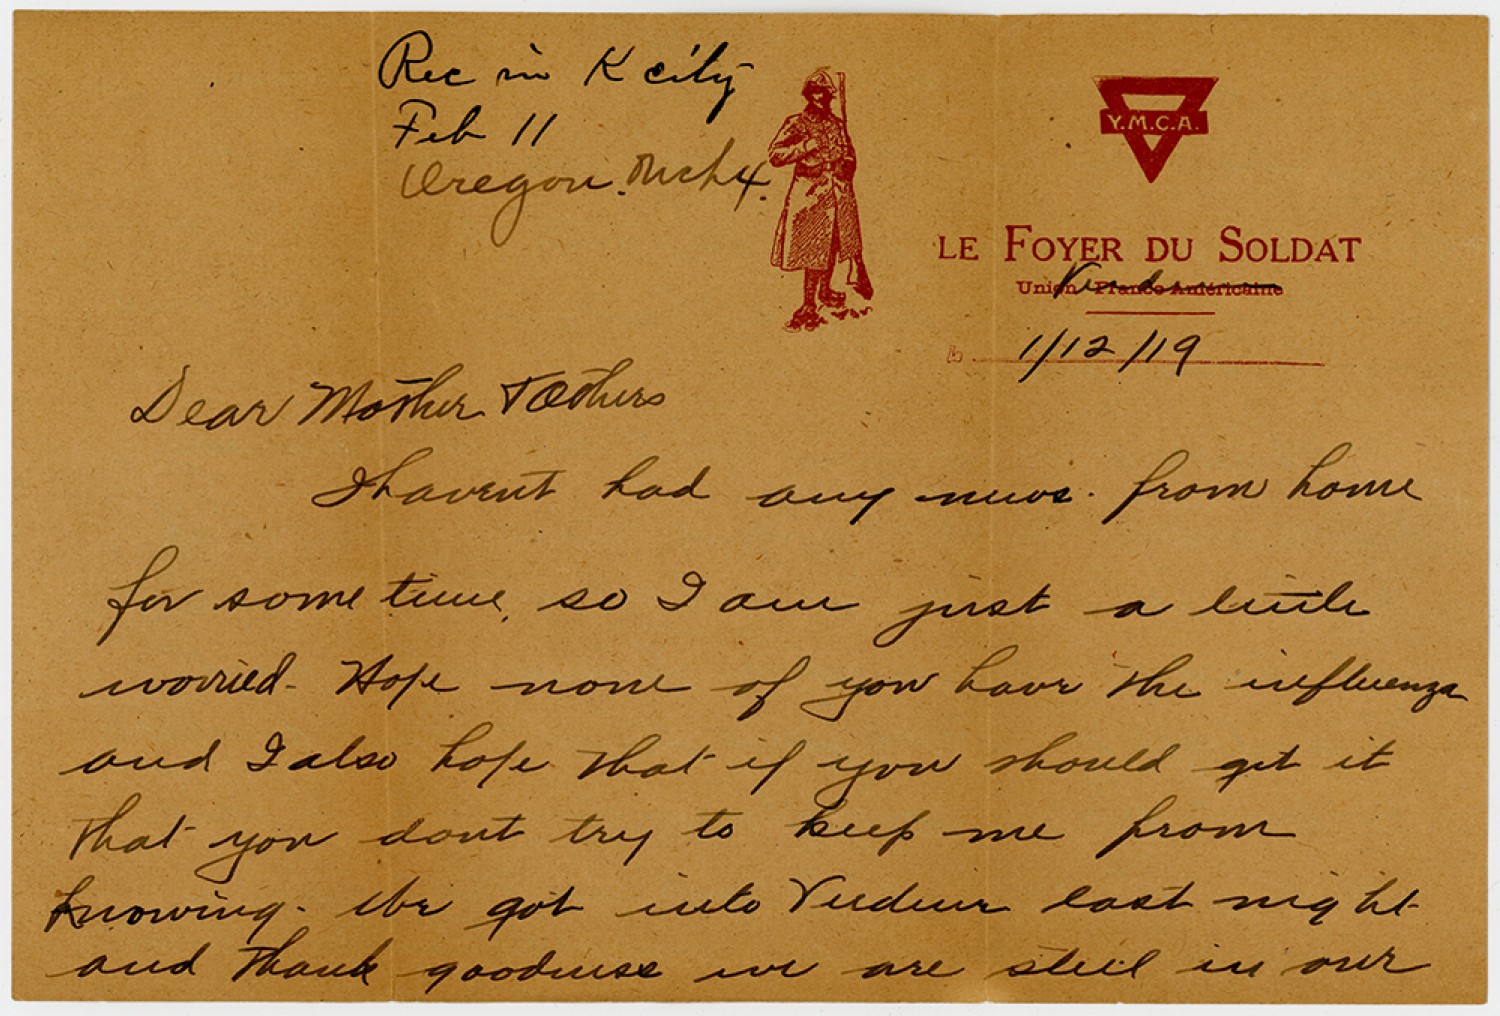 Rec in K city
Feb 11
Oregon. Mch 4.
Y.M.C.A.
LE FOYER DU SOLDAT
Union Franco-Américaine
1/12/19
Dear Mother & Others
I havent had any news. from home
for some time, so I am just a little
worried- Hope none of you have the influenza
and I also hope that if you should get it
that you dont try to keep me from
knowing- We got into last night
and thank goodness we are still in our